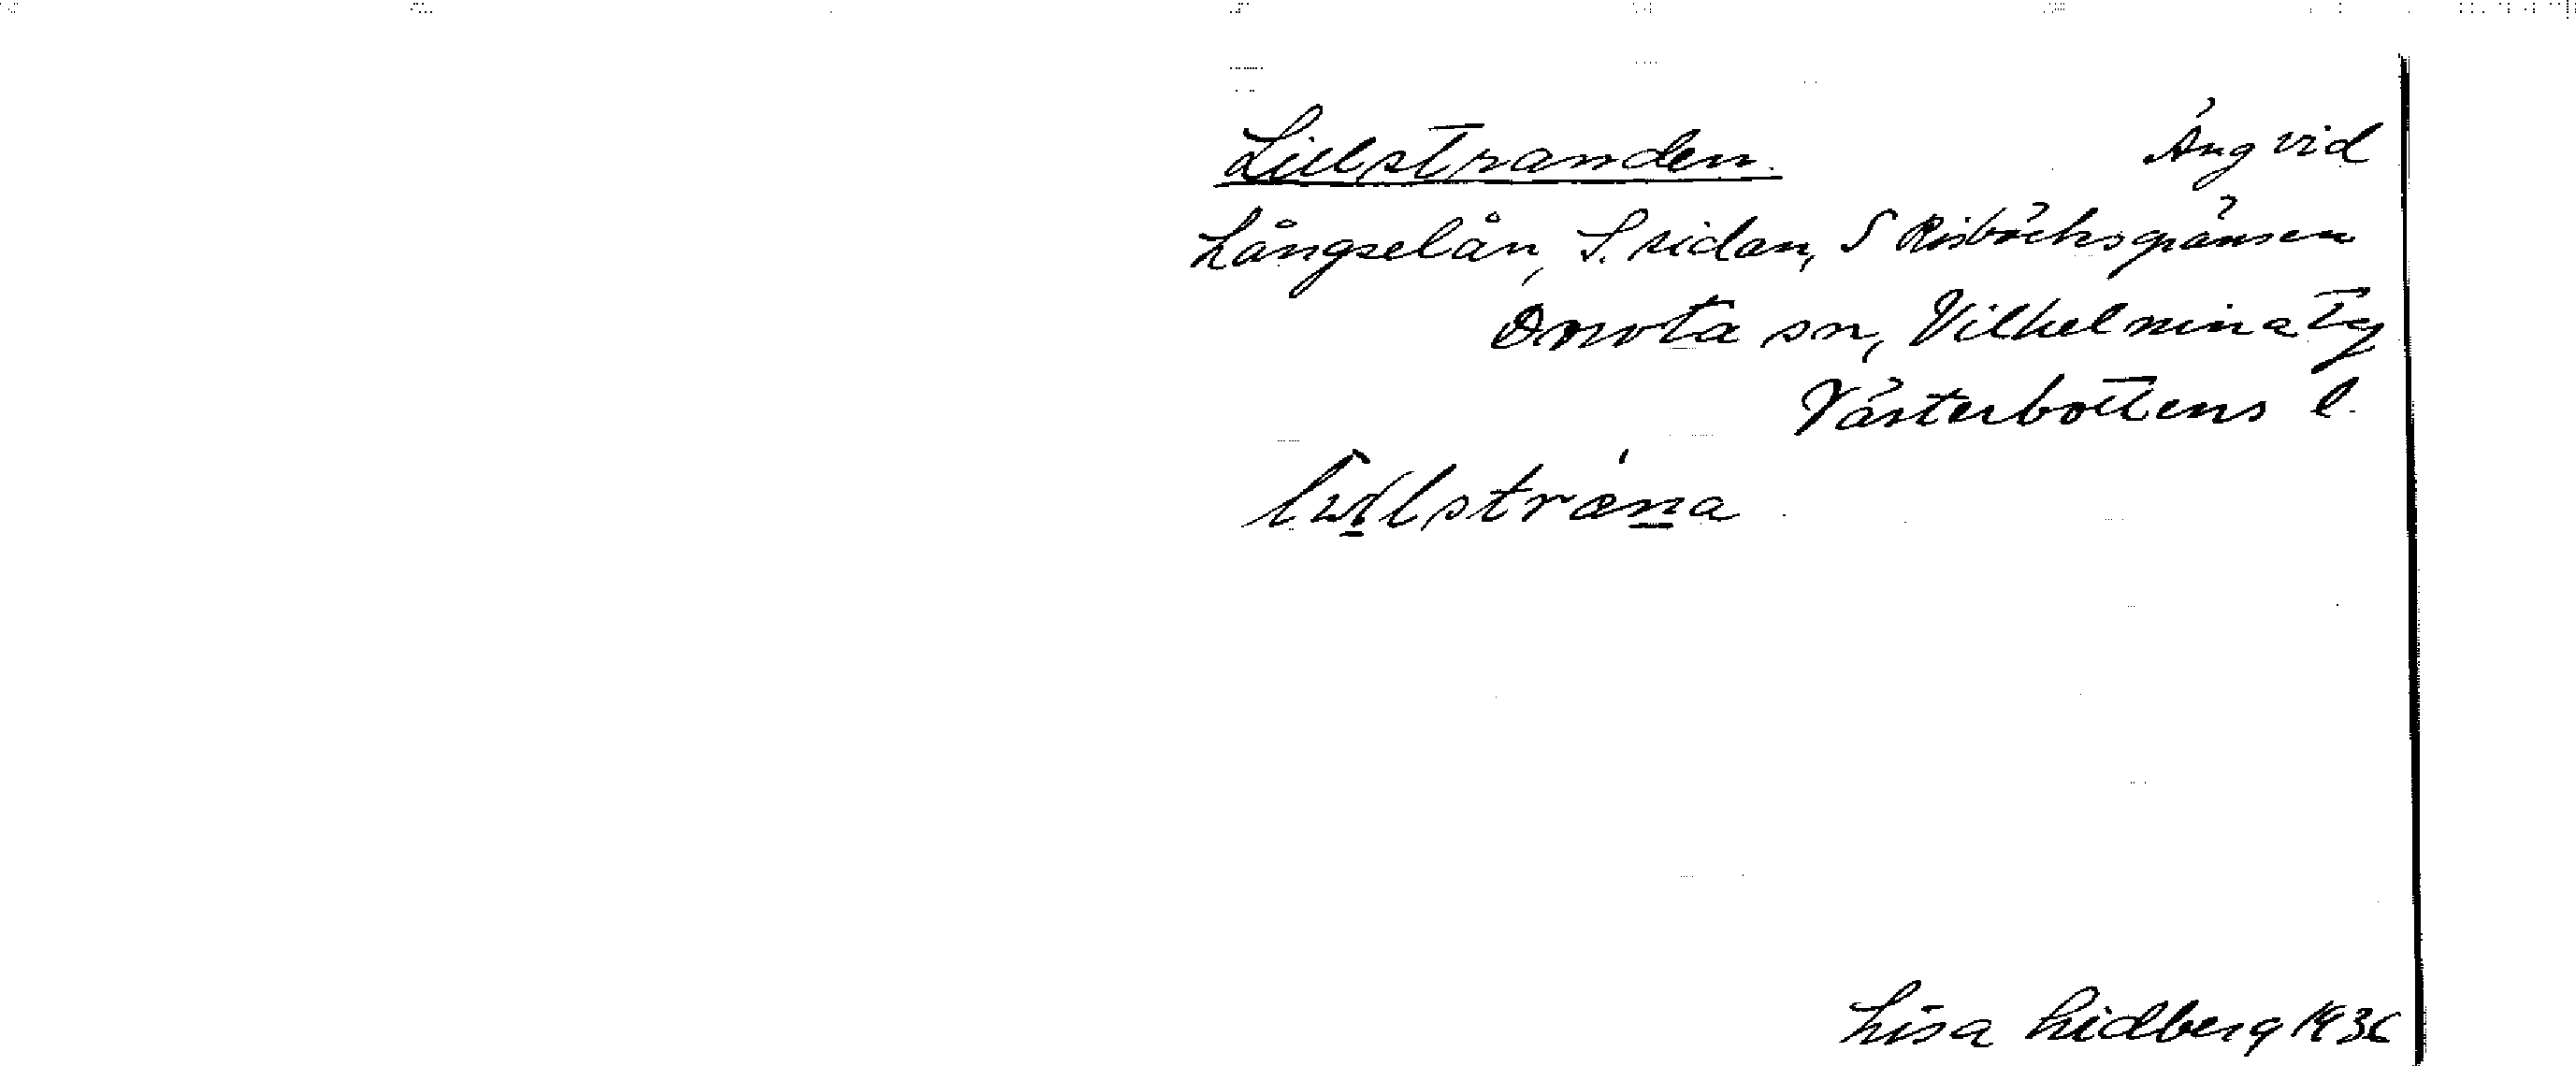 Lillstranden. Äng vid
Långselån, S. sidan, S Risbäcksgränsen
Dorotea sn, Vilhelmina tg
Västerbottens l.
Lisa Lidberg 1936